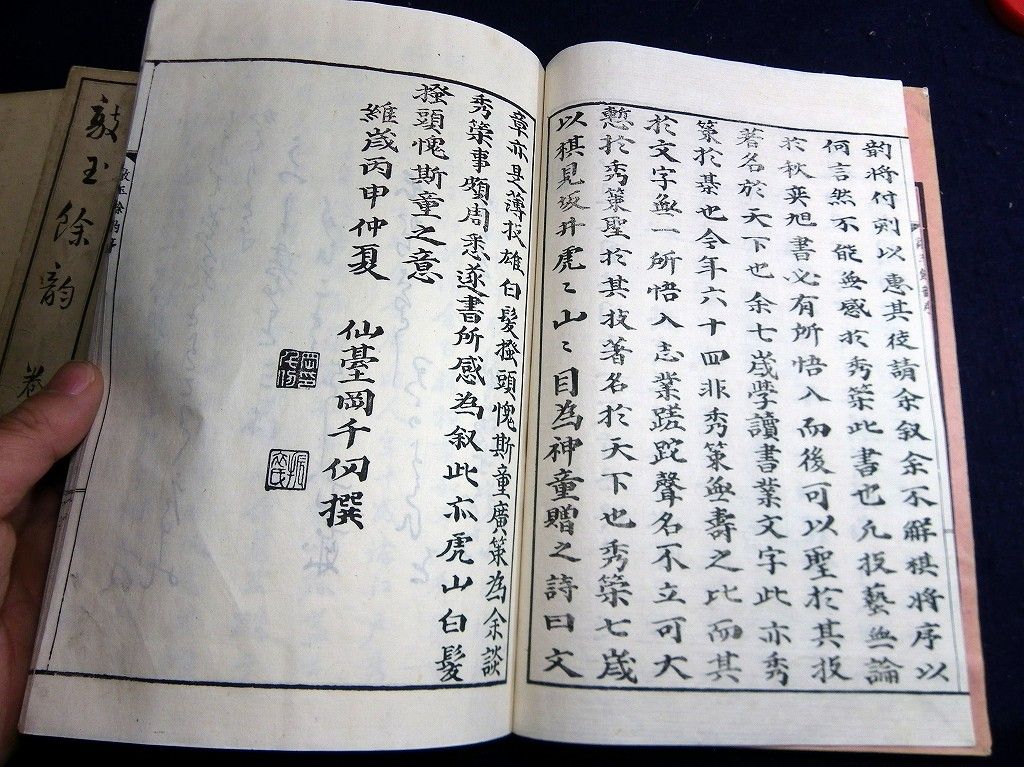 韵將付刻以惠其徒請余叙余不解棋將序以
何言然不能無感於秀策此書也凡技藝無論
於秋奕旭書必有所悟入而後可以聖於其技
著名於天下也余七歳学讀書業文字此亦秀
策於棊也今年六十四非秀策無壽之比而其
於文字無一所悟入志業蹉跎聲名不立可大
慙於秀策聖於其技著名於天下也秀策七歳
以棋見坂井虎〻山〻目為神童贈之詩曰文
章亦是薄技雄白髮搔頭愧斯童廣策為余談
秀策事頗周悉遂書所感為叙此亦虎山白髮
搔頭愧斯童之意
維歳丙申仲夏
仙臺岡千仞撰
振衣
敲玉餘韵
卷